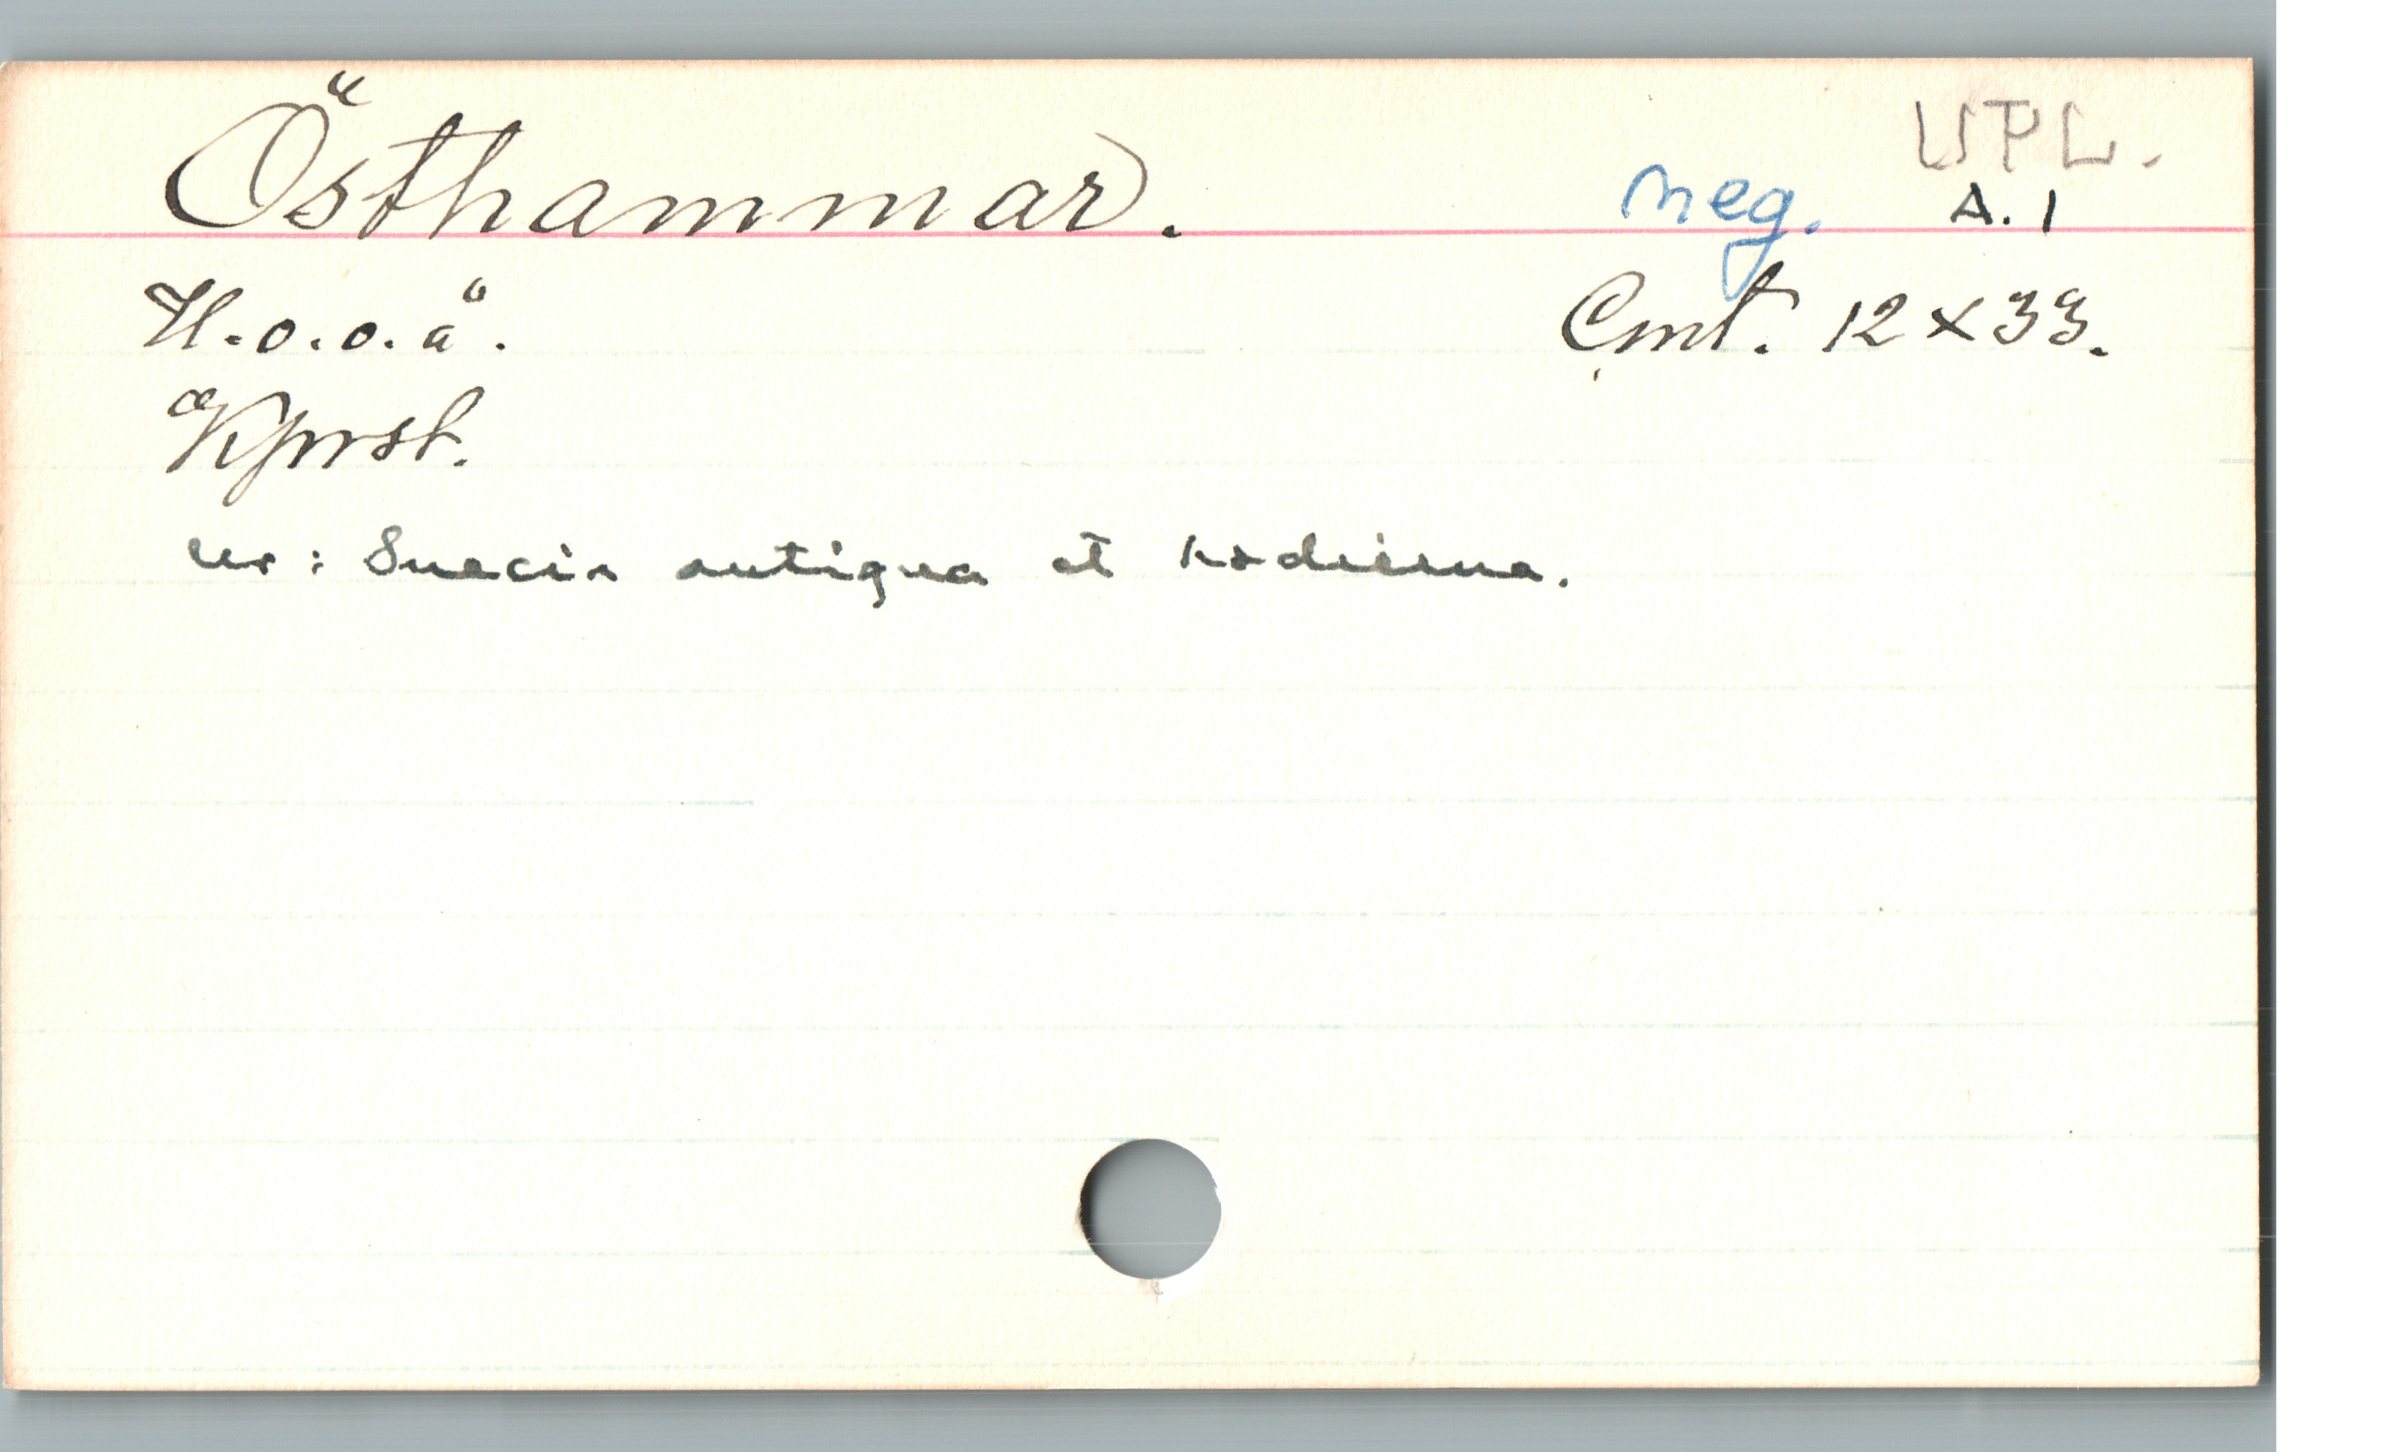 UPL.
Östhammar. neg. A. 1
H.o.o.ä. Cmt. 12 x 33.
Kprst.
ur: Suecia antiqua et hodierna.